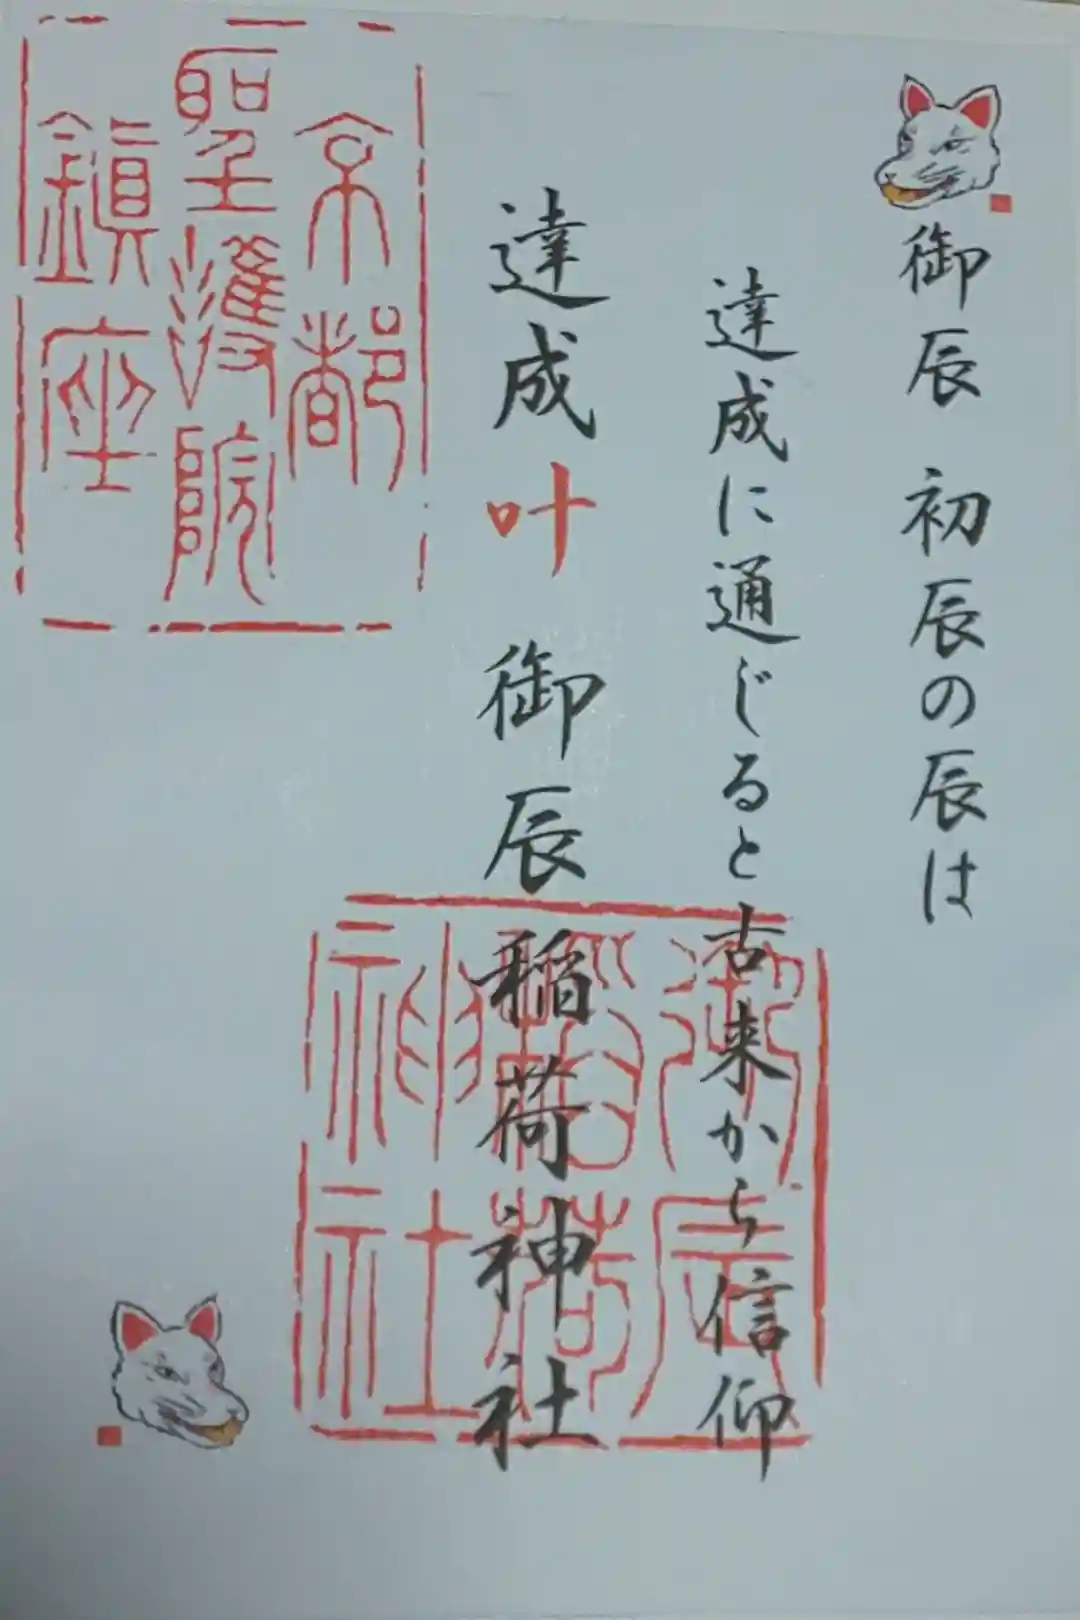 御辰 初辰の辰は
達成に通じると古来から信仰
達成叶 御辰稲荷神社
京都
聖護院
鎮座
御辰
稲荷
神社